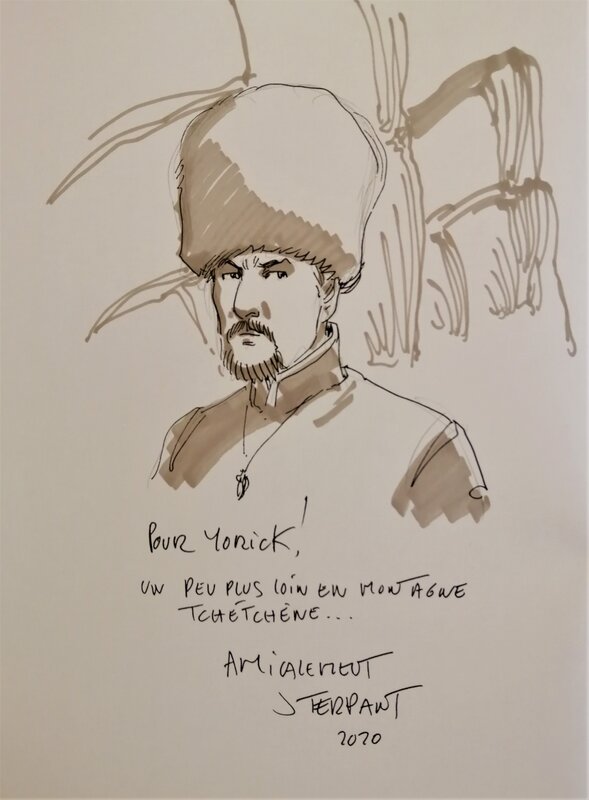 POUR YORICK !
UN PEU PLUS LOIN EN MONTAGNE
TCHÉTCHÈNE...
AMICALEMENT
J TERPANT
2020